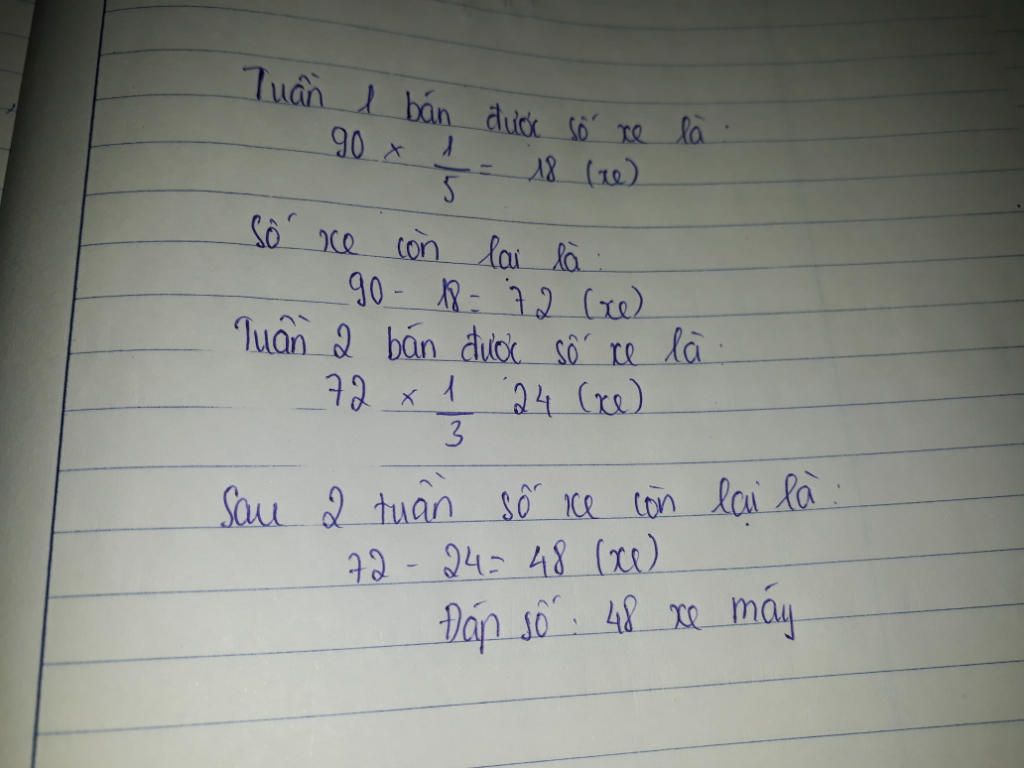 Tuần 1 bán được số xe là:
90 × 1/5 = 18 (xe)
Số xe còn lại là:
90 - 18 = 72 (xe)
Tuần 2 bán được số xe là:
72 × 1/3 24 (xe)
Sau 2 tuần số xe còn lại là:
72 - 24 = 48 (xe)
Đáp số: 48 xe máy